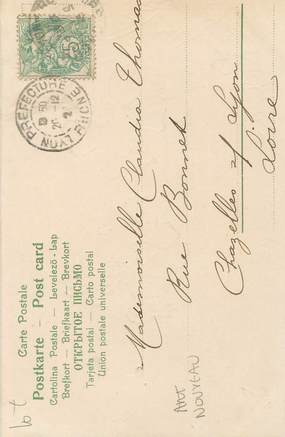 Carte Postale
Postkarte – Post card
Cartolina Postale – Levelező-Lap
Brefkort – Briefkaart – Brevkort
ОТКРЫТОЕ ПИСЬМО
Tarjeta postal – Carto postal
Union postale universelle
Mademoiselle Claudia Thomas
Rue Bonnet
Chazelles s/ Lyon
Loire
PREFECTURE
RHONE
LYON
ART
NOUVEAU